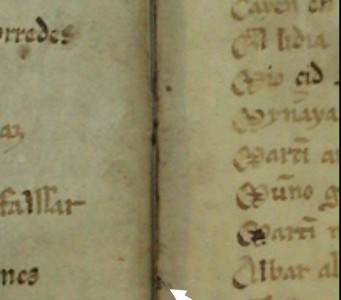 rredes
fallar
nes
Cayen en
El lidia
Mio çid
Mynaya
Martĩ an
Muño g
Martĩ
Albar al